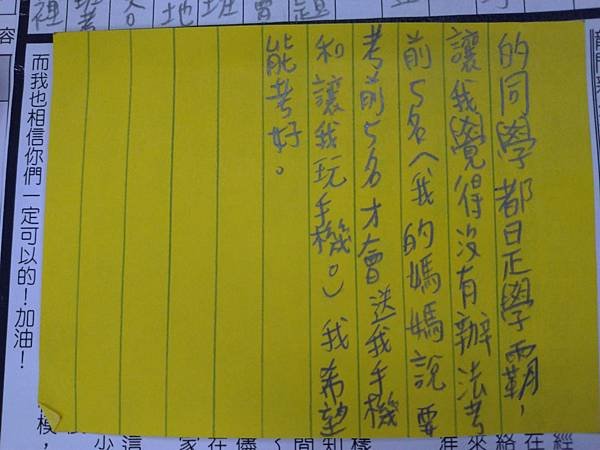 的同學都是學霸，
讓我覺得沒有辦法考
前5名（我的媽媽說要
考前5名才會送我手機
和讓我玩手機。）我希望
能考好。
而我也相信你們一定可以的！加油！
容